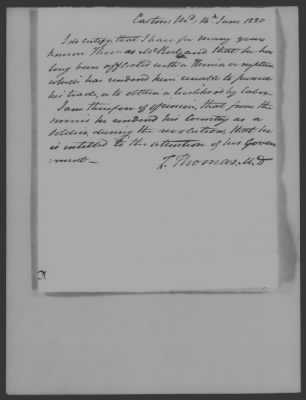 Easton, Md. 14th June 1820
I do certify that I have for many years
known Thomas McKeel, and that he has
long been afflicted with a Hernia or rupture
which has rendered him unable to pursue
his trade, or to obtain a livelihood by labor.
I am therefore of opinion, that from the
services he rendered his Country as a
soldier, during the revolution that he
is entitled to the attention of his Govern
-ment—
T. Thomas, M.D